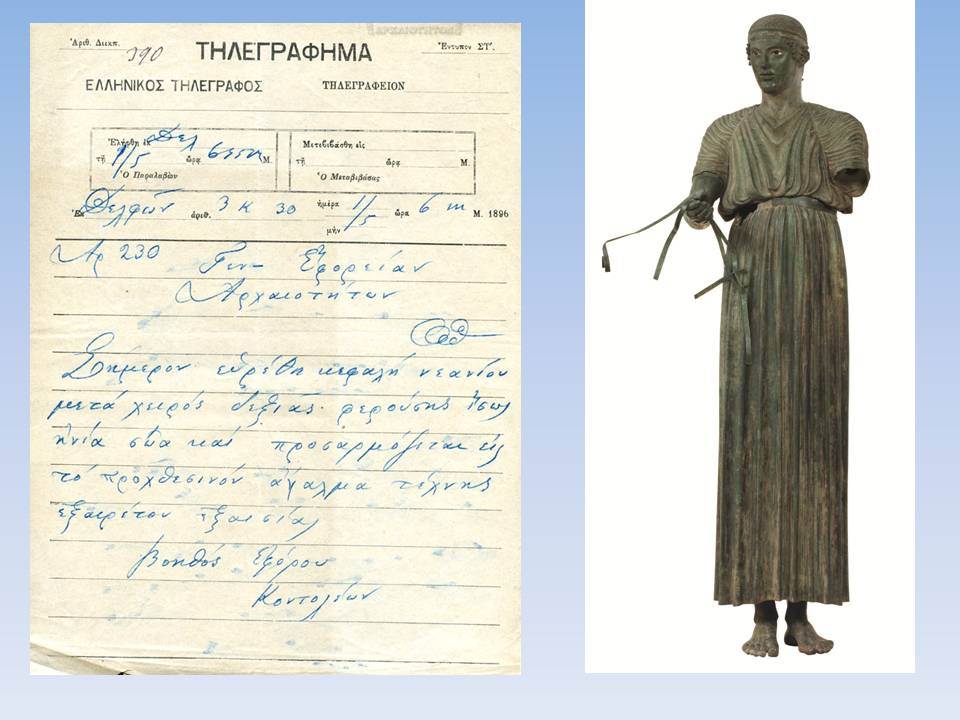 Ἀριθ. Διεκπ. 390
ΤΗΛΕΓΡΑΦΗΜΑ
Ἔντυπον ΣΤ'.
ΕΛΛΗΝΙΚΟΣ ΤΗΛΕΓΡΑΦΟΣ
ΤΗΛΕΓΡΑΦΕΙΟΝ
Ἐλήφθη ἐκ Δελ
τῇ 1/5 ὥρᾳ Μ.
Ὁ Παραλαβών
Μετεβιβάσθη εἰς
τῇ ὥρᾳ Μ.
Ὁ Μεταβιβάσας
Ἐκ Δελφῶν ἀριθ. 3 Κ 30 ἡμέρα 1/5 μήν ὥρα 6 m Μ. 1896
Αρ 230 Γεν Ἐφορείαν
Ἀρχαιοτήτων
Σήμερον εὑρέθη κεφαλή νεανίου
μετά χειρός δεξιᾶς φερούσης ἴσως
ἡνία σῶα καί προσαρμόζεται εἰς
τό προχθεσινόν ἄγαλμα τέχνης
ἐξαιρέτου
Βοηθός Ἐφόρου
Κοντολέων